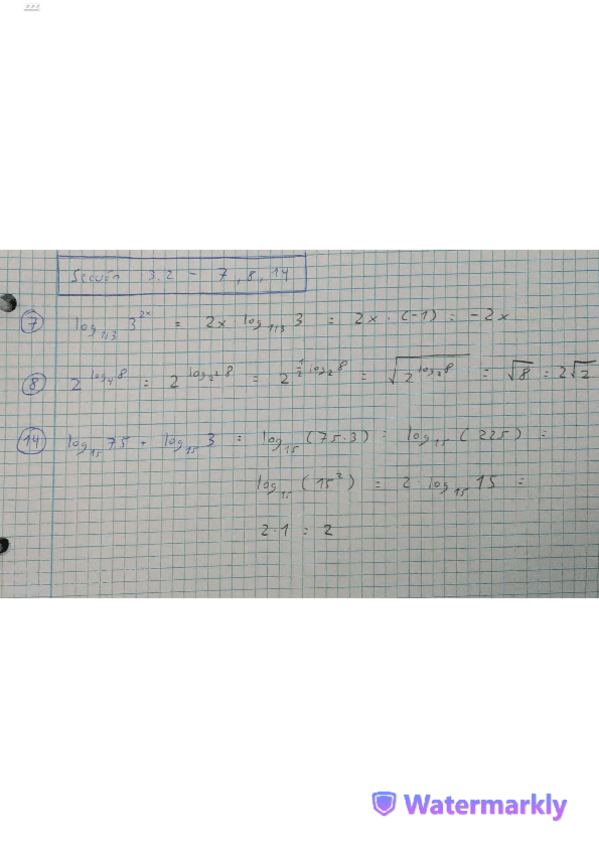 Sección 3.2 - 7, 8, 14
7 log₁/₃ 3²ˣ = 2x · log₁/₃ 3 = 2x · (-1) = -2x
8 2^(log₄ 8) = 2^(log₂² 8) = 2^(1/2 log₂ 8) = √(2^(log₂ 8)) = √8 = 2√2
14 log₁₅ 75 + log₁₅ 3 = log₁₅ (75·3) = log₁₅ (225) =
log₁₅ (15²) = 2 · log₁₅ 15 =
2·1 = 2
Watermarkly